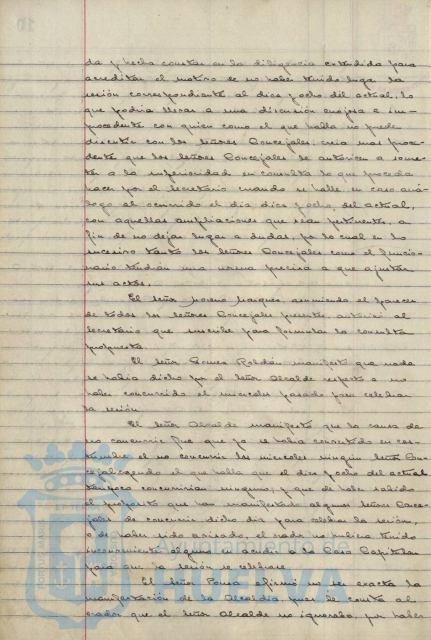 da y hecha constar en la diligencia extendida para
acreditar el motivo de no haber tenido lugar la
sesión correspondiente al diez y ocho del actual, lo
que podría llevar a una discusión enojosa e im-
procedente con quien como el que habla no puede
discutir con los señores Concejales, creía mas proce-
dente que los señores Concejales le autoricen a some-
ter a la superioridad en consulta lo que proceda
hacer por el Secretario cuando se halle en caso aná-
logo al ocurrido el día diez y ocho, del actual,
con aquellas ampliaciones que sean pertinentes, a
fin de no dejar lugar a dudas, por lo cual en lo
sucesivo tanto los señores Concejales como el funcio-
nario tendrán una norma precisa a que ajustar
sus actos.
El señor Moreno Marquez, asumiendo el parecer
de todos los señores Concejales presentes autorizó al
Secretario que suscribe para formular la consulta
propuesta.
El señor Gomez Roldán manifestó que nada
se había dicho por el señor Alcalde respecto a no
haber concurrido el miercoles pasado para celebrar
la sesión.
El señor Alcalde manifestó que la causa de
no concurrir fue que ya se había convertido en cos-
tumbre el no concurrir los miercoles ningun señor Con-
cejal creyendo el que habla que el diez y ocho del actual
tampoco concurririan ninguno; y que de haber sabido
el proposito que han manifestado algunos señores Conce-
jales de concurrir dicho día para celebrar la sesión,
o de haber sido avisado, el orador no hubiera tenido
inconveniente alguno en acudir a la Casa Capitular
para que la sesión se celebrase.
El señor Ponce afirmó no ser exacta la
manifestación de la Alcaldía, pues le consta al
orador que el señor Alcalde no ignoraba, por haber